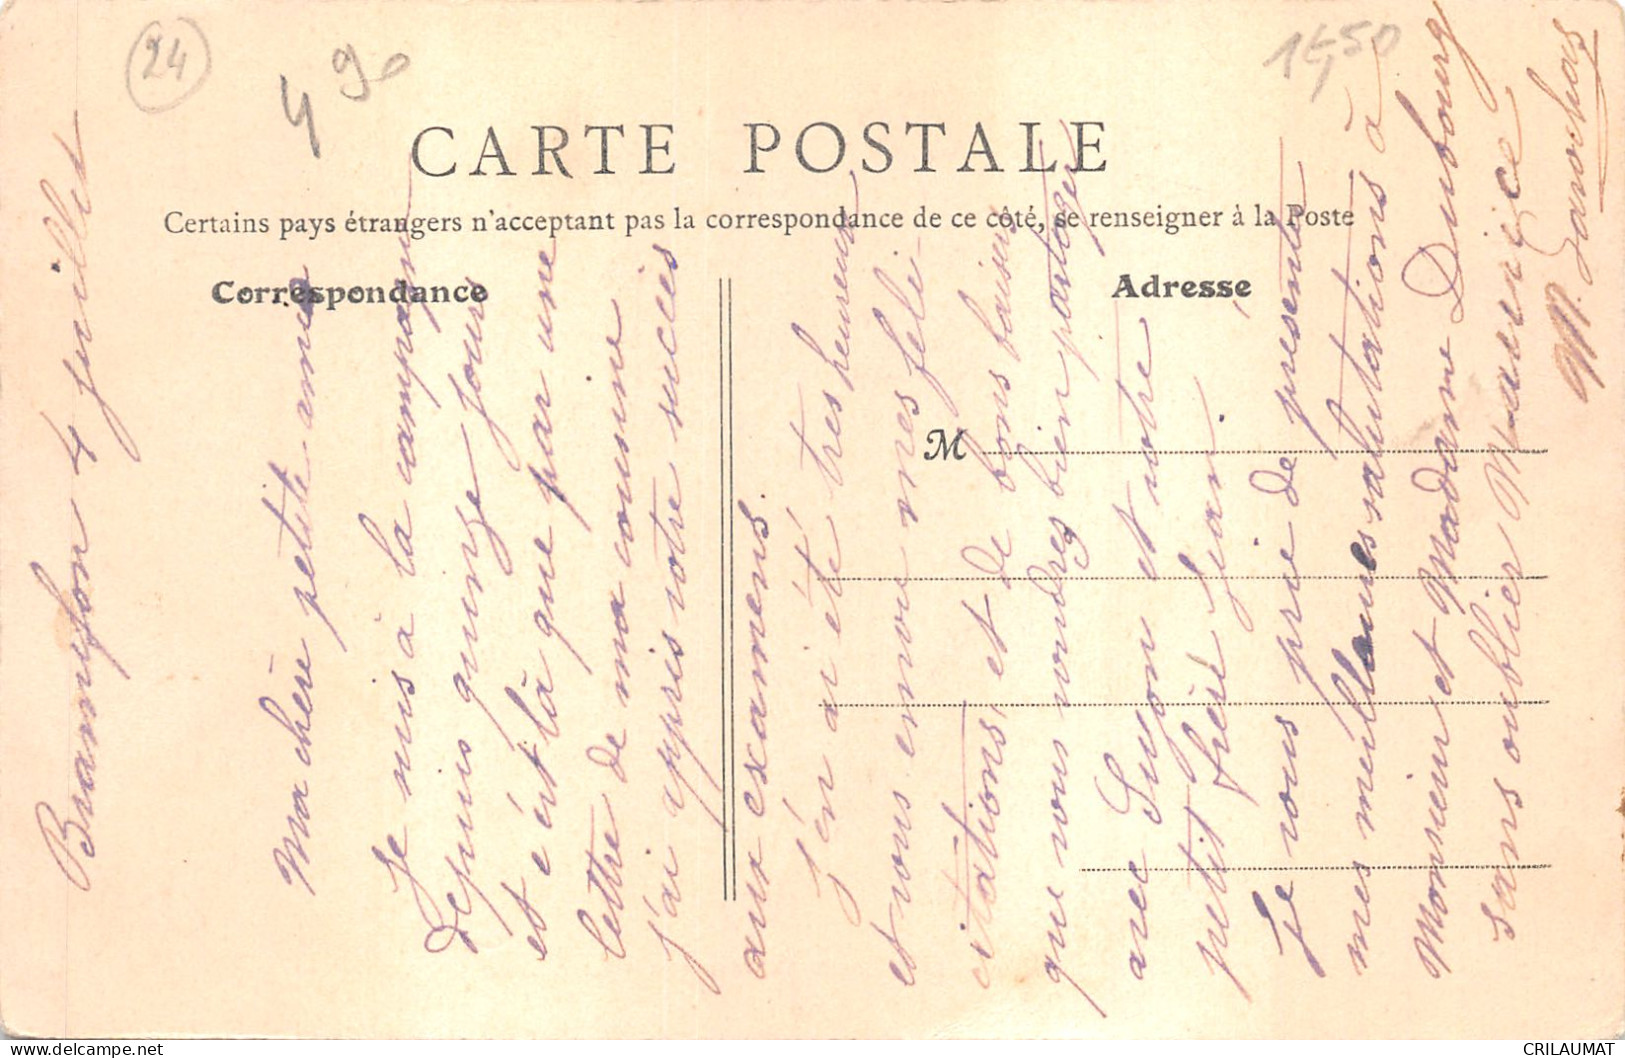 24
4 90
1€,50
CARTE POSTALE
Certains pays étrangers n'acceptant pas la correspondance de ce côté, se renseigner à la Poste
Correspondance
Adresse
M
4 juillet
Ma chère petite amie
Je suis à la campagne
depuis quinze jours
et c'est là que par une
lettre de ma cousine
j'ai appris votre succès
aux examens
j'en ai été très heureuse
et vous envoie mes féli
citations, et de bons baisers
que vous voudrez bien partager
avec Suzon et votre
petit frère Jean
Je vous prie de présenter
mes meilleures salutations à
Monsieur et Madame Dubourg
sans oublier Maurice
CRILAUMAT